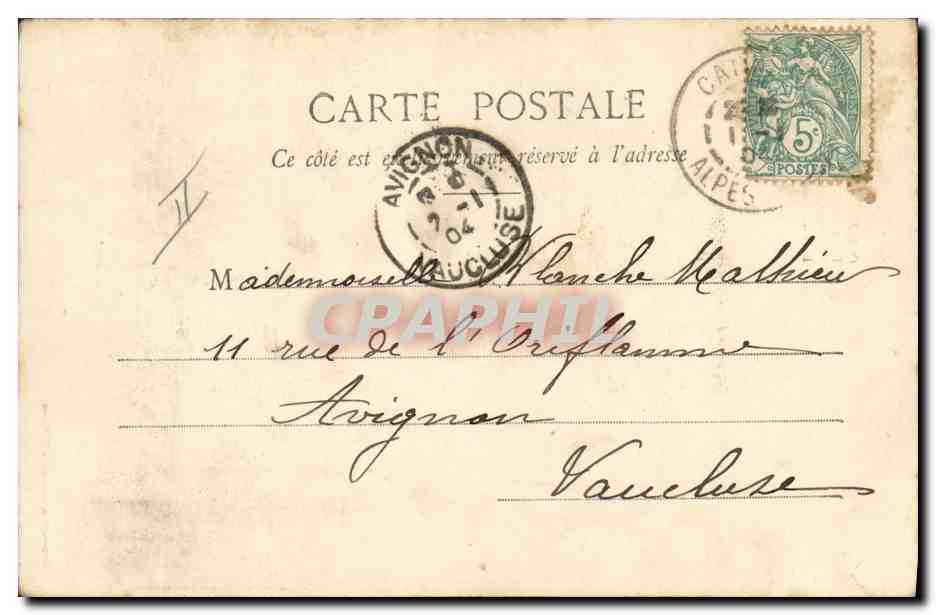 CARTE POSTALE
Ce côté est exclusivement réservé à l'adresse
AVIGNON
2 - 1
04
VAUCLUSE
1 - 1
04
ALPES
5c
POSTES
II
Mademoiselle Blanche Mathieu
11 rue de l'Oriflamme
Avignon
Vaucluse
CPAPHIL